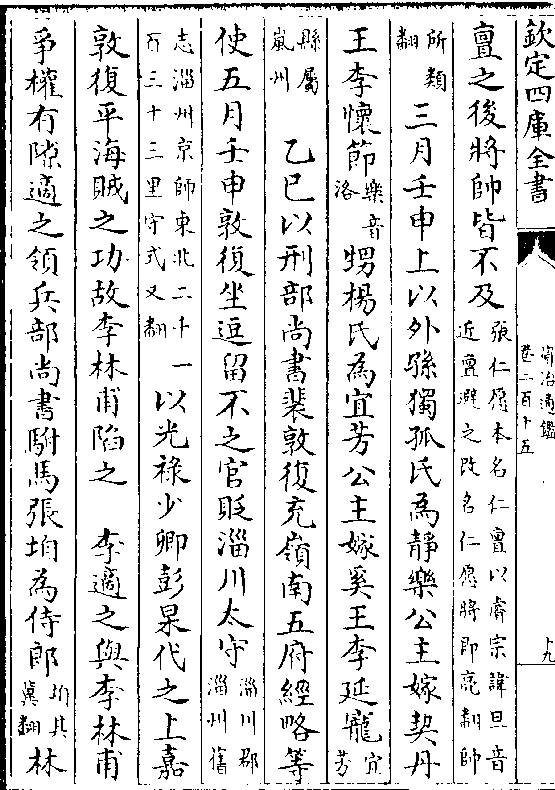 欽定四庫全書
資治通鑑
卷二百十五
十九
亶之後將帥皆不及張仁愿本名仁亶以睿宗諱旦音近亶避之改名仁愿將即亮翻帥
所類翻 三月壬申上以外孫獨孤氏為靜樂公主嫁契丹
王李懷節樂音洛甥楊氏為宜芳公主嫁奚王李延寵宜芳
縣屬嵐州 乙巳以刑部尚書裴敦復充嶺南五府經略等
使五月壬申敦復坐逗留不之官貶淄川太守淄川郡淄州舊
志淄州京師東北二千一百三十三里守式又翻以光祿少卿彭杲代之上嘉
敦復平海賊之功故李林甫陷之 李適之與李林甫
爭權有隙適之領兵部尚書駙馬張垍為侍郎垍其冀翻林